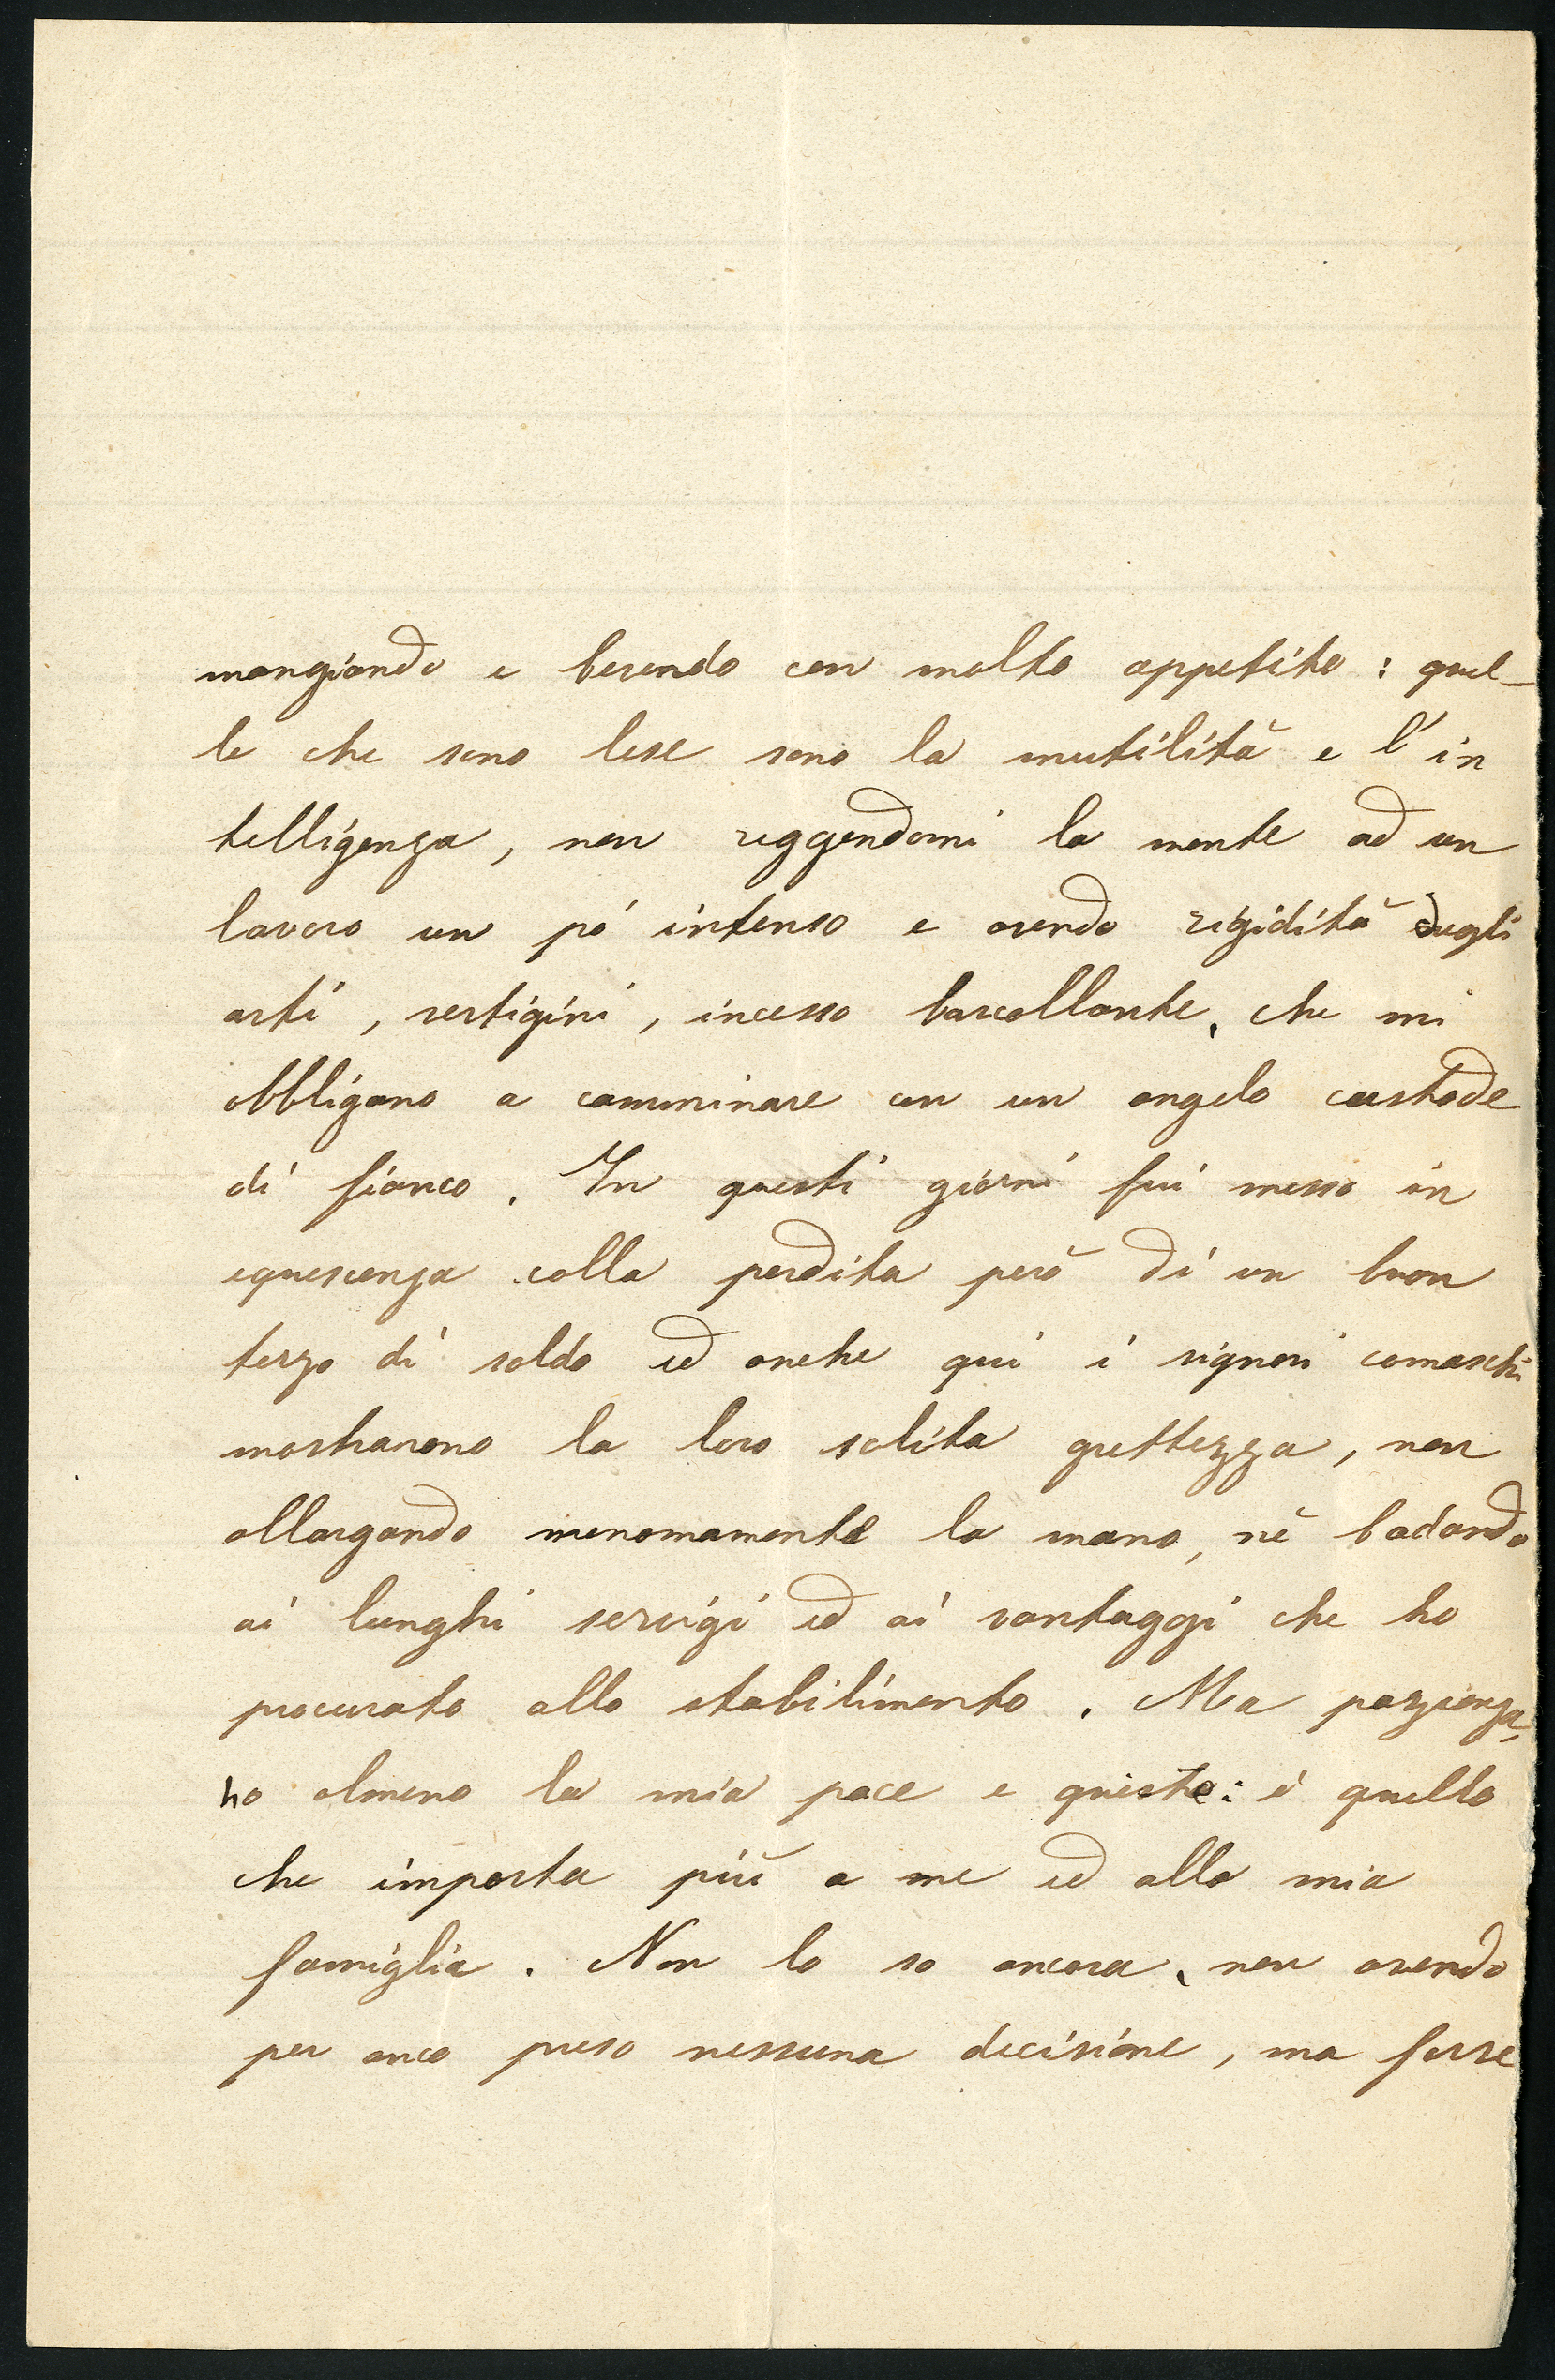 mangiando e bevendo con molto appetito : quel-
le che sono lese sono la mutilità e l'in
telligenza, non reggendomi la mente ad un
lavoro un pó intenso e avendo rigidità degli
arti, vertigini, incesso barcollante, che mi
obbligano a camminare con un angelo custode
di fianco. In questi giorni fui messo in
equescenza colla perdita però di un buon
terzo di soldo ed anche qui i signori comaschi
mostrarono la loro solita grettezza, non
allargando menomamente la mano, nè badando
ai lunghi servigi ed ai vantaggi che ho
procurato allo stabilimento. Ma pazienza,
ho almeno la mia pace e queste: è quello
che importa più a me ed alla mia
famiglia. Non lo so ancora, non avendo
per anco preso nessuna decisione, ma forse